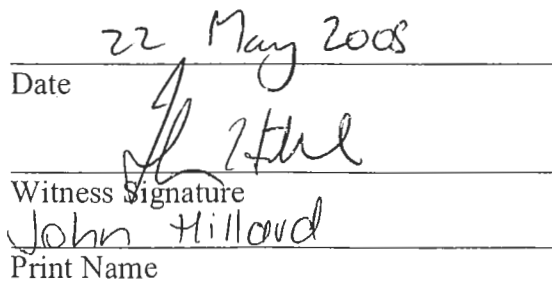 22 May 2008
Date
Witness Signature
John Hillard
Print Name